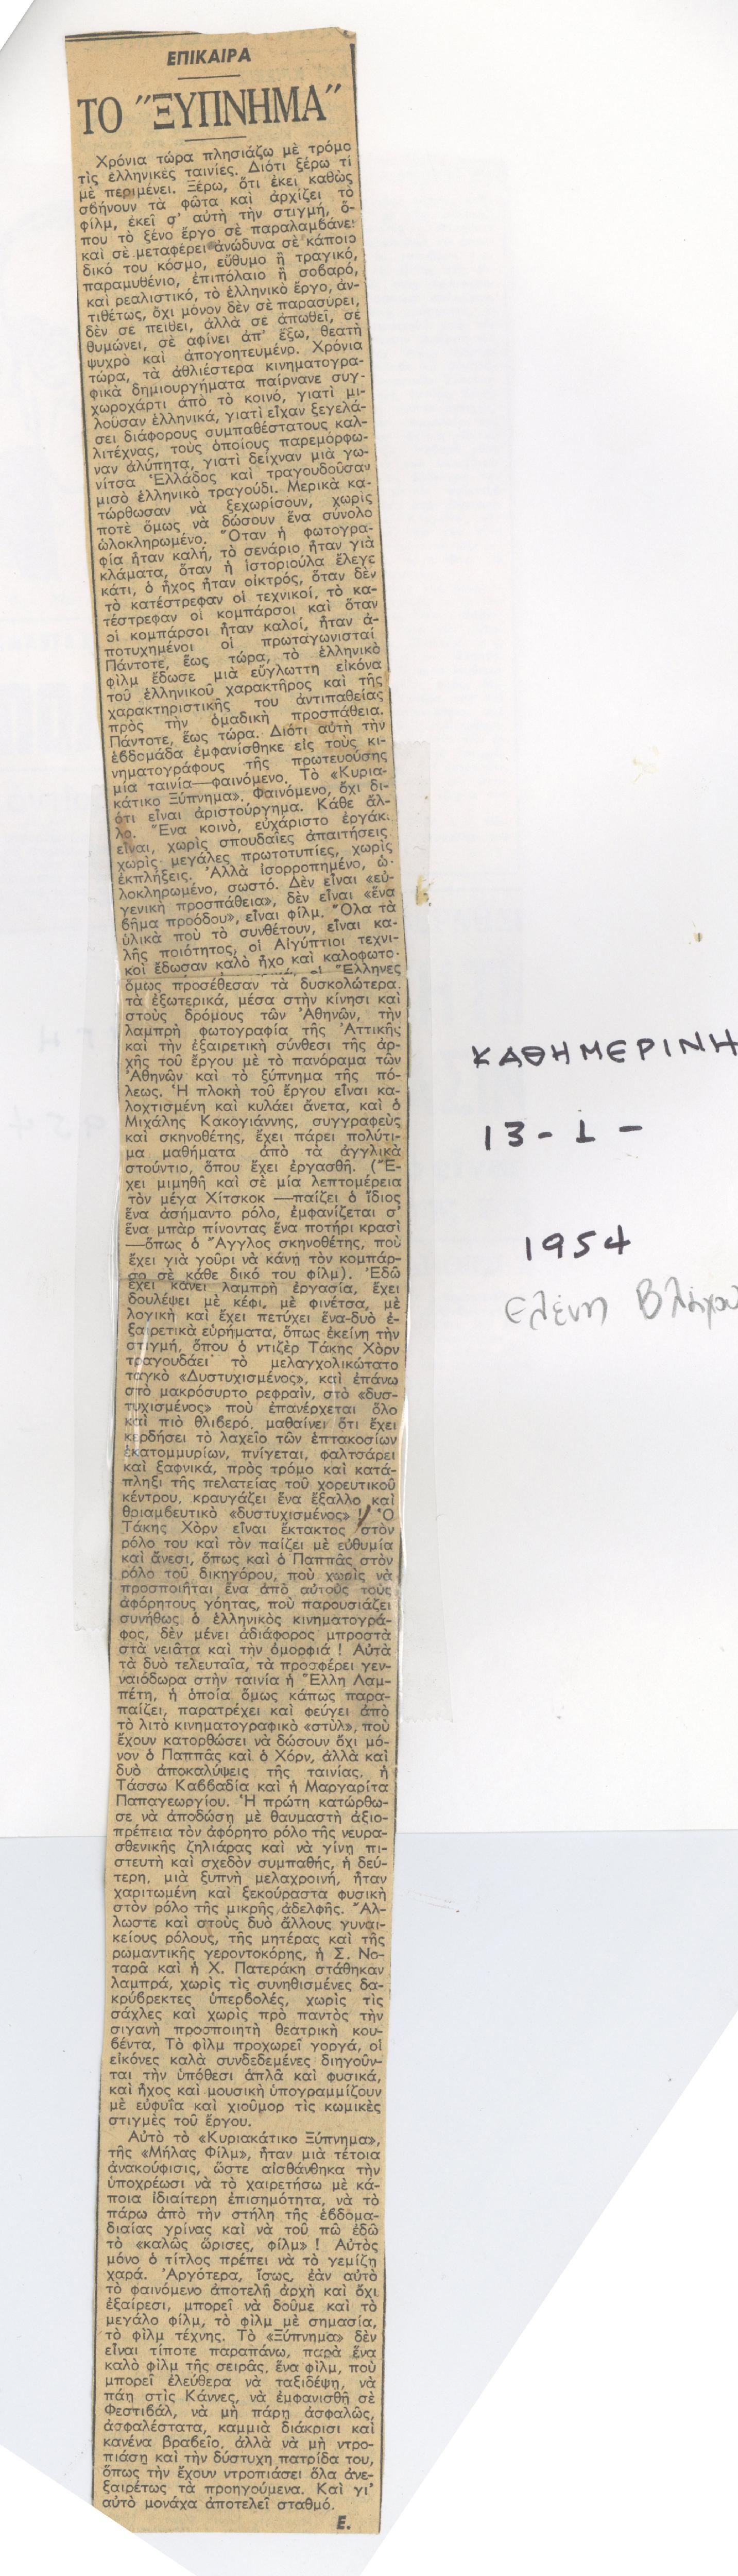 ΕΠΙΚΑΙΡΑ
ΤΟ "ΞΥΠΝΗΜΑ"
Χρόνια τώρα πλησιάζω μὲ τρόμο
τὶς ἑλληνικὲς ταινίες. Διότι ξέρω τί
μὲ περιμένει. Ξέρω, ὅτι ἐκεῖ καθὼς
σβήνουν τὰ φῶτα καὶ ἀρχίζει τὸ
φίλμ, ἐκεῖ σ' αὐτὴ τὴν στιγμή, ὅ-
που τὸ ξένο ἔργο σὲ παραλαμβάνει
καὶ σὲ μεταφέρει ἀνώδυνα σὲ κάποιο
δικό του κόσμο, εὔθυμο ἢ τραγικό,
παραμυθένιο, ἐπιπόλαιο ἢ σοβαρό,
καὶ ρεαλιστικό, τὸ ἑλληνικὸ ἔργο, ἀν-
τιθέτως, ὄχι μόνον δὲν σὲ παρασύρει,
δὲν σὲ πείθει, ἀλλὰ σὲ ἀπωθεῖ, σὲ
θυμώνει, σὲ ἀφίνει ἀπ' ἔξω, θεατὴ
ψυχρὸ καὶ ἀπογοητευμένο. Χρόνια
τώρα, τὰ ἀθλιέστερα κινηματογρα-
φικὰ δημιουργήματα παίρνανε συγ-
χωροχάρτι ἀπὸ τὸ κοινό, γιατὶ μι-
λοῦσαν ἑλληνικά, γιατὶ εἶχαν ξεγελά-
σει διάφορους συμπαθέστατους καλ-
λιτέχνας, τοὺς ὁποίους παρεμόρφω-
ναν ἀλύπητα, γιατὶ δείχναν μιὰ γω-
νίτσα Ἑλλάδος καὶ τραγουδοῦσαν
μισὸ ἑλληνικὸ τραγούδι. Μερικὰ κα-
τώρθωσαν νὰ ξεχωρίσουν, χωρὶς
ποτὲ ὅμως νὰ δώσουν ἕνα σύνολο
ὡλοκληρωμένο. Ὅταν ἡ φωτογρα-
φία ἦταν καλή, τὸ σενάριο ἦταν γιὰ
κλάματα, ὅταν ἡ ἱστοριούλα ἔλεγε
κάτι, ὁ ἦχος ἦταν οἰκτρός, ὅταν δὲν
τὸ κατέστρεφαν οἱ τεχνικοί, τὸ κα-
τέστρεφαν οἱ κομπάρσοι καὶ ὅταν
οἱ κομπάρσοι ἦταν καλοί, ἦταν ἀ-
ποτυχημένοι οἱ πρωταγωνισταί
Πάντοτε, ἕως τώρα, τὸ ἑλληνικὸ
φὶλμ ἔδωσε μιὰ εὔγλωττη εἰκόνα
τοῦ ἑλληνικοῦ χαρακτῆρος καὶ τῆς
χαρακτηριστικῆς του ἀντιπαθείας
πρὸς τὴν ὁμαδικὴ προσπάθεια.
Πάντοτε, ἕως τώρα. Διότι αὐτὴ τὴν
ἑβδομάδα ἐμφανίσθηκε εἰς τοὺς κι-
νηματογράφους τῆς πρωτευούσης
μία ταινία—φαινόμενο. Τὸ «Κυρια-
κάτικο Ξύπνημα». Φαινόμενο, ὄχι δι-
ότι εἶναι ἀριστούργημα. Κάθε ἄλ-
λο. Ἕνα κοινό, εὐχάριστο ἐργάκι
εἶναι, χωρὶς σπουδαῖες ἀπαιτήσεις
χωρὶς μεγάλες πρωτοτυπίες, χωρὶς
ἐκπλήξεις. Ἀλλὰ ἰσορροπημένο, ὡ-
λοκληρωμένο, σωστό. Δὲν εἶναι «εὐ-
γενικὴ προσπάθεια», δὲν εἶναι «ἕνα
βῆμα προόδου», εἶναι φίλμ. Ὅλα τὰ
ὑλικὰ ποὺ τὸ συνθέτουν, εἶναι κα-
λῆς ποιότητος, οἱ Αἰγύπτιοι τεχνι-
κοὶ ἔδωσαν καλὸ ἦχο καὶ καλοφωτο-
οἱ Ἕλληνες
ὅμως προσέθεσαν τὰ δυσκολώτερα.
τὰ ἐξωτερικά, μέσα στὴν κίνησι καὶ
στοὺς δρόμους τῶν Ἀθηνῶν, τὴν
λαμπρὴ φωτογραφία τῆς Ἀττικῆς
καὶ τὴν ἐξαιρετικὴ σύνθεσι τῆς ἀρ-
χῆς τοῦ ἔργου μὲ τὸ πανόραμα τῶν
Ἀθηνῶν καὶ τὸ ξύπνημα τῆς πό-
λεως. Ἡ πλοκὴ τοῦ ἔργου εἶναι κα-
λοχτισμένη καὶ κυλάει ἄνετα, καὶ ὁ
Μιχάλης Κακογιάννης, συγγραφεὺς
καὶ σκηνοθέτης, ἔχει πάρει πολύτι-
μα μαθήματα ἀπὸ τὰ ἀγγλικὰ
στούντιο, ὅπου ἔχει ἐργασθῆ. (Ἔ-
χει μιμηθῆ καὶ σὲ μία λεπτομέρεια
τὸν μέγα Χίτσκοκ —παίζει ὁ ἴδιος
ἕνα ἀσήμαντο ρόλο, ἐμφανίζεται σ'
ἕνα μπὰρ πίνοντας ἕνα ποτήρι κρασὶ
—ὅπως ὁ Ἄγγλος σκηνοθέτης, ποὺ
ἔχει γιὰ γοῦρι νὰ κάνῃ τὸν κομπάρ-
σο σὲ κάθε δικό του φίλμ). Ἐδῶ
ἔχει κάνει λαμπρὴ ἐργασία, ἔχει
δουλέψει μὲ κέφι, μὲ φινέτσα, μὲ
λογικὴ καὶ ἔχει πετύχει ἕνα-δυὸ ἐ-
ξαιρετικὰ εὑρήματα, ὅπως ἐκείνη τὴν
στιγμή, ὅπου ὁ ντιζὲρ Τάκης Χὸρν
τραγουδάει τὸ μελαγχολικώτατο
ταγκὸ «Δυστυχισμένος», καὶ ἐπάνω
στὸ μακρόσυρτο ρεφραίν, στὸ «δυσ-
τυχισμένος» ποὺ ἐπανέρχεται ὅλο
καὶ πιὸ θλιβερό, μαθαίνει ὅτι ἔχει
κερδήσει τὸ λαχεῖο τῶν ἑπτακοσίων
ἑκατομμυρίων, πνίγεται, φαλτσάρει
καὶ ξαφνικά, πρὸς τρόμο καὶ κατά-
πληξι τῆς πελατείας τοῦ χορευτικοῦ
κέντρου, κραυγάζει ἕνα ἔξαλλο καὶ
θριαμβευτικὸ «δυστυχισμένος» ! Ὁ
Τάκης Χὸρν εἶναι ἔκτακτος στὸν
ρόλο του καὶ τὸν παίζει μὲ εὐθυμία
καὶ ἄνεσι, ὅπως καὶ ὁ Παππᾶς στὸν
ρόλο τοῦ δικηγόρου, ποὺ χωρὶς νὰ
προσποιῆται ἕνα ἀπὸ αὐτοὺς τοὺς
ἀφόρητους γόητας, ποὺ παρουσιάζει
συνήθως ὁ ἑλληνικὸς κινηματογρά-
φος, δὲν μένει ἀδιάφορος μπροστὰ
στὰ νειᾶτα καὶ τὴν ὀμορφιά ! Αὐτὰ
τὰ δυὸ τελευταῖα, τὰ προσφέρει γεν-
ναιόδωρα στὴν ταινία ἡ Ἕλλη Λαμ-
πέτη, ἡ ὁποία ὅμως κάπως παρα-
παίζει, παρατρέχει καὶ φεύγει ἀπὸ
τὸ λιτὸ κινηματογραφικὸ «στύλ», ποὺ
ἔχουν κατορθώσει νὰ δώσουν ὄχι μό-
νον ὁ Παππᾶς καὶ ὁ Χόρν, ἀλλὰ καὶ
δυὸ ἀποκαλύψεις τῆς ταινίας, ἡ
Τάσσω Καββαδία καὶ ἡ Μαργαρίτα
Παπαγεωργίου. Ἡ πρώτη κατώρθω-
σε νὰ ἀποδώσῃ μὲ θαυμαστὴ ἀξιο-
πρέπεια τὸν ἀφόρητο ρόλο τῆς νευρα-
σθενικῆς ζηλιάρας καὶ νὰ γίνῃ πι-
στευτὴ καὶ σχεδὸν συμπαθής, ἡ δεύ-
τερη, μιὰ ξυπνὴ μελαχροινή, ἦταν
χαριτωμένη καὶ ξεκούραστα φυσικὴ
στὸν ρόλο τῆς μικρῆς ἀδελφῆς. Ἄλ-
λωστε καὶ στοὺς δυὸ ἄλλους γυναι-
κείους ρόλους, τῆς μητέρας καὶ τῆς
ρωμαντικῆς γεροντοκόρης, ἡ Σ. Νο-
ταρᾶ καὶ ἡ Χ. Πατεράκη στάθηκαν
λαμπρά, χωρὶς τὶς συνηθισμένες δα-
κρύβρεκτες ὑπερβολές, χωρὶς τὶς
σάχλες καὶ χωρὶς πρὸ παντὸς τὴν
σιγανὴ προσποιητὴ θεατρικὴ κου-
βέντα. Τὸ φὶλμ προχωρεῖ γοργά, οἱ
εἰκόνες καλὰ συνδεδεμένες διηγοῦν-
ται τὴν ὑπόθεσι ἁπλᾶ καὶ φυσικά,
καὶ ἦχος καὶ μουσικὴ ὑπογραμμίζουν
μὲ εὐφυΐα καὶ χιοῦμορ τὶς κωμικὲς
στιγμὲς τοῦ ἔργου.
Αὐτὸ τὸ «Κυριακάτικο Ξύπνημα»,
τῆς «Μήλας Φίλμ», ἦταν μιὰ τέτοια
ἀνακούφισις, ὥστε αἰσθάνθηκα τὴν
ὑποχρέωσι νὰ τὸ χαιρετήσω μὲ κά-
ποια ἰδιαίτερη ἐπισημότητα, νὰ τὸ
πάρω ἀπὸ τὴν στήλη τῆς ἑβδομα-
διαίας γρίνας καὶ νὰ τοῦ πῶ ἐδῶ
τὸ «καλῶς ὥρισες, φίλμ» ! Αὐτὸς
μόνο ὁ τίτλος πρέπει νὰ τὸ γεμίζῃ
χαρά. Ἀργότερα, ἴσως, ἐὰν αὐτὸ
τὸ φαινόμενο ἀποτελῆ ἀρχὴ καὶ ὄχι
ἐξαίρεσι, μπορεῖ νὰ δοῦμε καὶ τὸ
μεγάλο φίλμ, τὸ φὶλμ μὲ σημασία,
τὸ φὶλμ τέχνης. Τὸ «Ξύπνημα» δὲν
εἶναι τίποτε παραπάνω, παρὰ ἕνα
καλὸ φὶλμ τῆς σειρᾶς, ἕνα φίλμ, ποὺ
μπορεῖ ἐλεύθερα νὰ ταξιδέψῃ, νὰ
πάῃ στὶς Κάννες, νὰ ἐμφανισθῆ σὲ
Φεστιβάλ, νὰ μὴ πάρῃ ἀσφαλῶς,
ἀσφαλέστατα, καμμιὰ διάκρισι καὶ
κανένα βραβεῖο, ἀλλὰ νὰ μὴ ντρο-
πιάσῃ καὶ τὴν δύστυχη πατρίδα του,
ὅπως τὴν ἔχουν ντροπιάσει ὅλα ἀνε-
ξαιρέτως τὰ προηγούμενα. Καὶ γι'
αὐτὸ μονάχα ἀποτελεῖ σταθμό.
Ε.
ΚΑΘΗΜΕΡΙΝΗ
13 - 1 -
1954
Ελένη Βλάχου